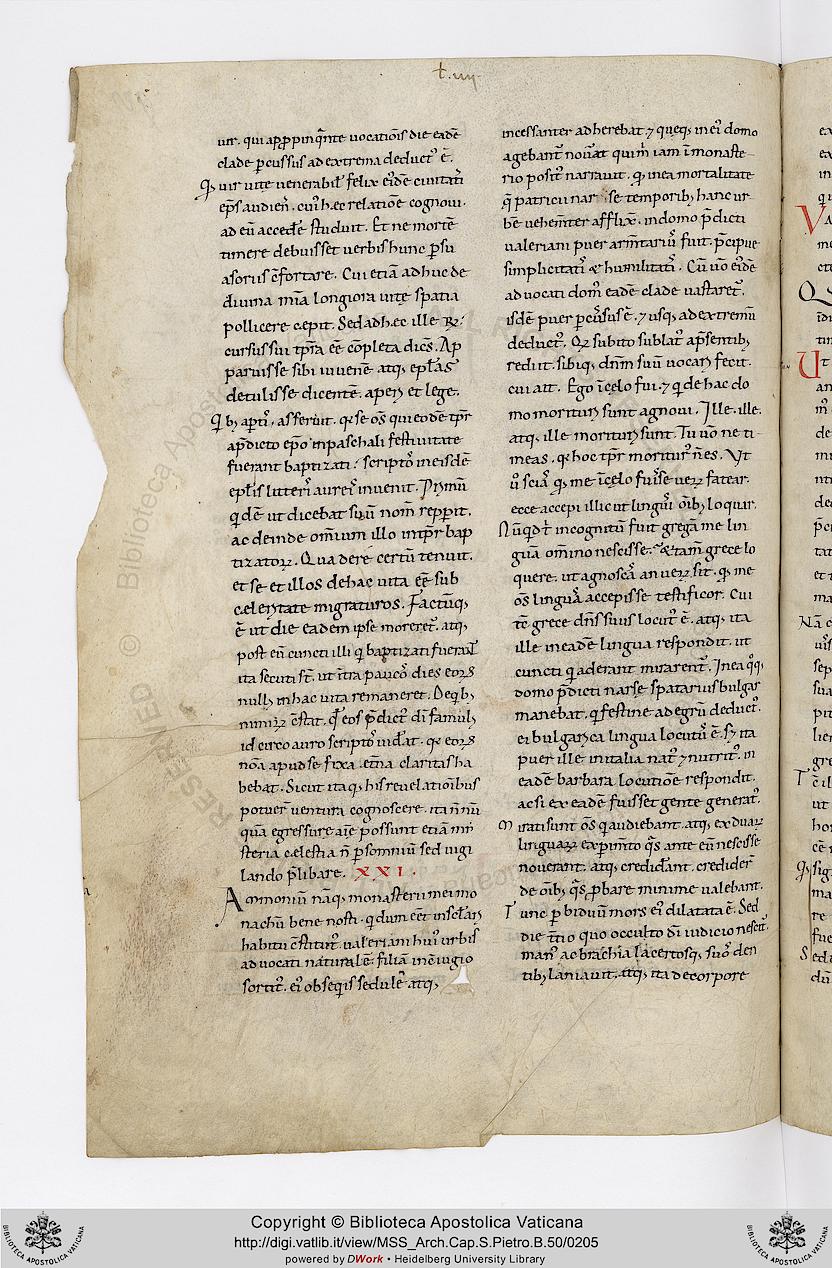 ł. iiij.
uir. qui app̱ropinq̄nte uocatiōis die eadē
clade ꝑcussus ad extrema deduct᷒ ē.
Qḋ uir uite uenerabil̄ felix eiꝰdē ciuitatis̄
ep̄s audien̄. cui᷒ hec relatiōe cognoui.
ad eū accedēe studuit. Et ne mortē
timere debuisset uerbis hunc ꝑsu
asoriis c̄fortare. Cui etiā adhuc de
diuina mīa longiora uite spatia
pollicere cepit. Sed ad hec ille R̄
cursus sui tp̄ra eē cōpleta dicēs. Ap
paruisse sibi iuuenē atq; ep̄las
detulisse dicentē. aperi et lege.
Qibꝰ apti᷒. asseruit. qđ se ōs qui eodē tp̄r
ap̄dicto ep̄o in paschali festiuitate
fuerant baptizati. scripto᷒ in eisdē
ep̄lis litteris̄ aureis̄ inuenit. Primū
qdē ut dicebat suū nom̄ repperit.
ac deinde omīum illo int̄pr bap
tizatoꝝ. Qua de re certū tenuit.
et se et illos de hac uita eē sub
celeritate migraturos. Factūq;
ē ut die eadem ipse moreret᷒. atq;
post eū cuncti illi q̇ baptizati fuerant̄
ita secuti st̄. ut īt̄ra pauco᷒ dies eoꝝ
null᷒ in hac uita remaneret. De qibꝰ
nimirꝝ c̄stat. qđ eos p̄dict᷒ dī famul᷒
idcirco auro scripto᷒ uid̄at. qꝛ eoꝝ
nōa apud se fixa. etn̄a claritas ha
bebat. Sicut itaq; his reuelatiōibus
potuer̄ uentura cognoscere. ita n̄nū
quā egressure aīe possunt etiā mi
steria celestia n̄ ꝑ somniū sed uigi
lando p̄libare. XXI.
Ammoniū nāq; monasterii mei mo
nachū bene nosti. q̇ dum eēt in sclari
habitu c̄stitut᷒. ualeriani hui᷒ urbis
aduocati naturalē filiā in c̄iugio
sortit᷒. ei᷒ obseqis sedulē atq;
incessanter adherebat ⁊ queq; in ei᷒ domo
agebant᷒ nouerat qui m̄ iam ī monaste
rio posit᷒ narrauit. qđ in ea mortalitate
q̄ patricii narse temporibꝰ hanc ur
bē uehemēter afflixit. in domo p̄dicti
ualeriani puer armtariꝰ fuit. p̄cipue
simplicitatis̄ & humilitatis̄. Cū uo̅ eiꝰdē
aduocati dom᷒ eadē clade uastaret᷒.
isdē puer ꝑcussus ē. ⁊ usq; ad extremū
deduct᷒. Qꝛ subito sublat᷒ ap̄sentibꝰ
rediit. sibiq; dn̄m suū uocari fecit.
cui ait. Ego ī celo fui. ⁊ q̇ de hac do
mo morituri sunt agnoui. Ille. ille.
atq; ille morituri sunt. Tu uō ne ti
meas. qꝛ hoc tp̄r moritur᷒ n̄ es. Vt
ū sciās qđ me ī celo fuisse ueꝝ fatear.
ecce accepi illic ut linguis̄ oībꝰ loquar.
Nūqd t̄ incognitū fuit grecā me lin
guā omīno nescisse. & tam̄ grece lo
quere. ut agnoscā an ueꝝ sit. qđ me
ōs linguas̄ accepisse testificor. Cui
tc̄ grece dn̄s suus locut᷒ ē. atq; ita
ille in eadē lingua respondit. ut
cuncti q̇ aderant mirarent᷒. In ea q̊q;
domo p̄dicti narse spatarius bulgar
manebat. q̇ festine ad egrū deduct᷒.
ei bulgarica lingua locut᷒ ē. sꝫ ita
puer ille in italia nat᷒ ⁊ nutrit᷒. in
eadē barbara locutiōe respondit.
acsi ex eadē fuisset gente generat᷒.
Mirati sunt ōs q̇ audiebant. atq; ex duaꝝ
linguaꝝ exꝑimto q̄s ante eū nescisse
nouerant. atq; crediderant. credider̄
de oībꝰ q̄s ꝓbare minime ualebant.
Tunc ꝑ biduū mors ei᷒ dilatata ē. Sed
die t̄tio quo occulto dī iudicio nescit᷒.
man᷒ ac brachia lacertosq; suo᷒ den
tibꝰ laniauit. atq; ita de corpore
Copyright © Biblioteca Apostolica Vaticana
http://digi.vatlib.it/view/MSS_Arch.Cap.S.Pietro.B.50/0205
powered by DWork • Heidelberg University Library